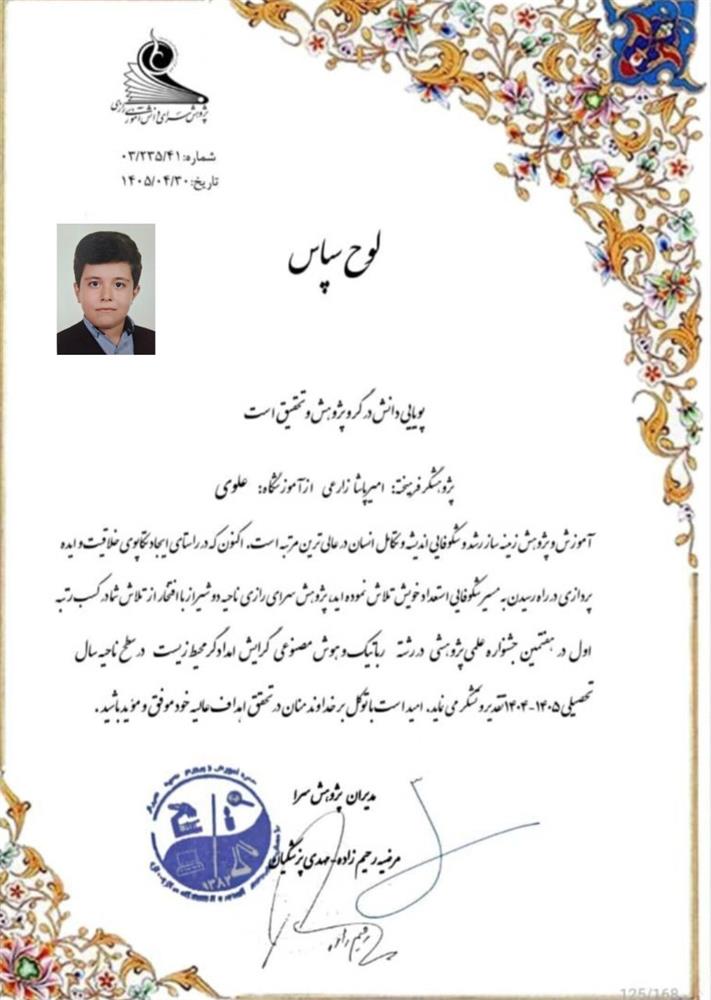 پژوهش سرای دانش آموزی رازی
شماره: ۰۳/۲۳۵/۴۱
تاریخ: ۱۴۰۵/۰۴/۳۰
لوح سپاس
پویایی دانش در گرو پژوهش و تحقیق است
پژوهشگر فرهیخته: امیرپاشا زارعی از آموزشگاه: علوی
آموزش و پژوهش زمینه ساز رشد و شکوفایی اندیشه و تکامل انسان در عالی ترین مرتبه است. اکنون که در راستای ایجاد تکاپوی خلاقیت و ایده
پردازی در راه رسیدن به مسیر شکوفایی استعداد خویش تلاش نموده اید، پژوهش سرای رازی ناحیه دو شیراز با افتخار از تلاش شما در کسب رتبه
اول در هفتمین جشنواره علمی پژوهشی در رشته رباتیک و هوش مصنوعی گرایش امدادگر محیط زیست در سطح ناحیه سال
تحصیلی ۱۴۰۵-۱۴۰۴ تقدیر و تشکر می نماید. امید است با توکل بر خداوند منان در تحقق اهداف عالیه خود موفق و مؤید باشید.
مدیران پژوهش سرا
مرضیه رحیم زاده - مهدی پزشکیان
۱۳۸۲
رحیم زاده
125/168